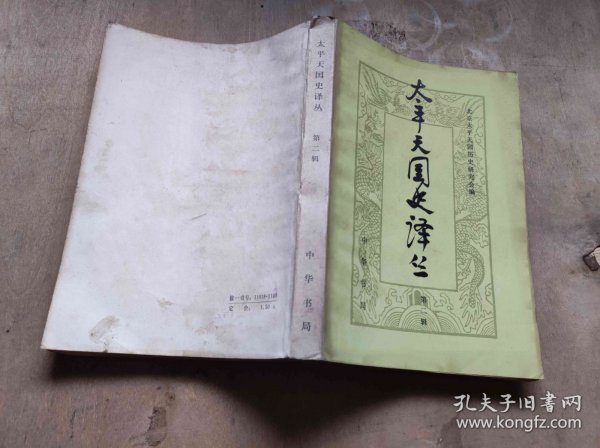 太平天国史译丛
北京太平天国历史研究会编
中华书局
第二辑
太平天国史译丛
第二辑
中华书局
统一书号：11018·1109
定 价： 1.50 元
孔夫子旧书网
www.kongfz.com